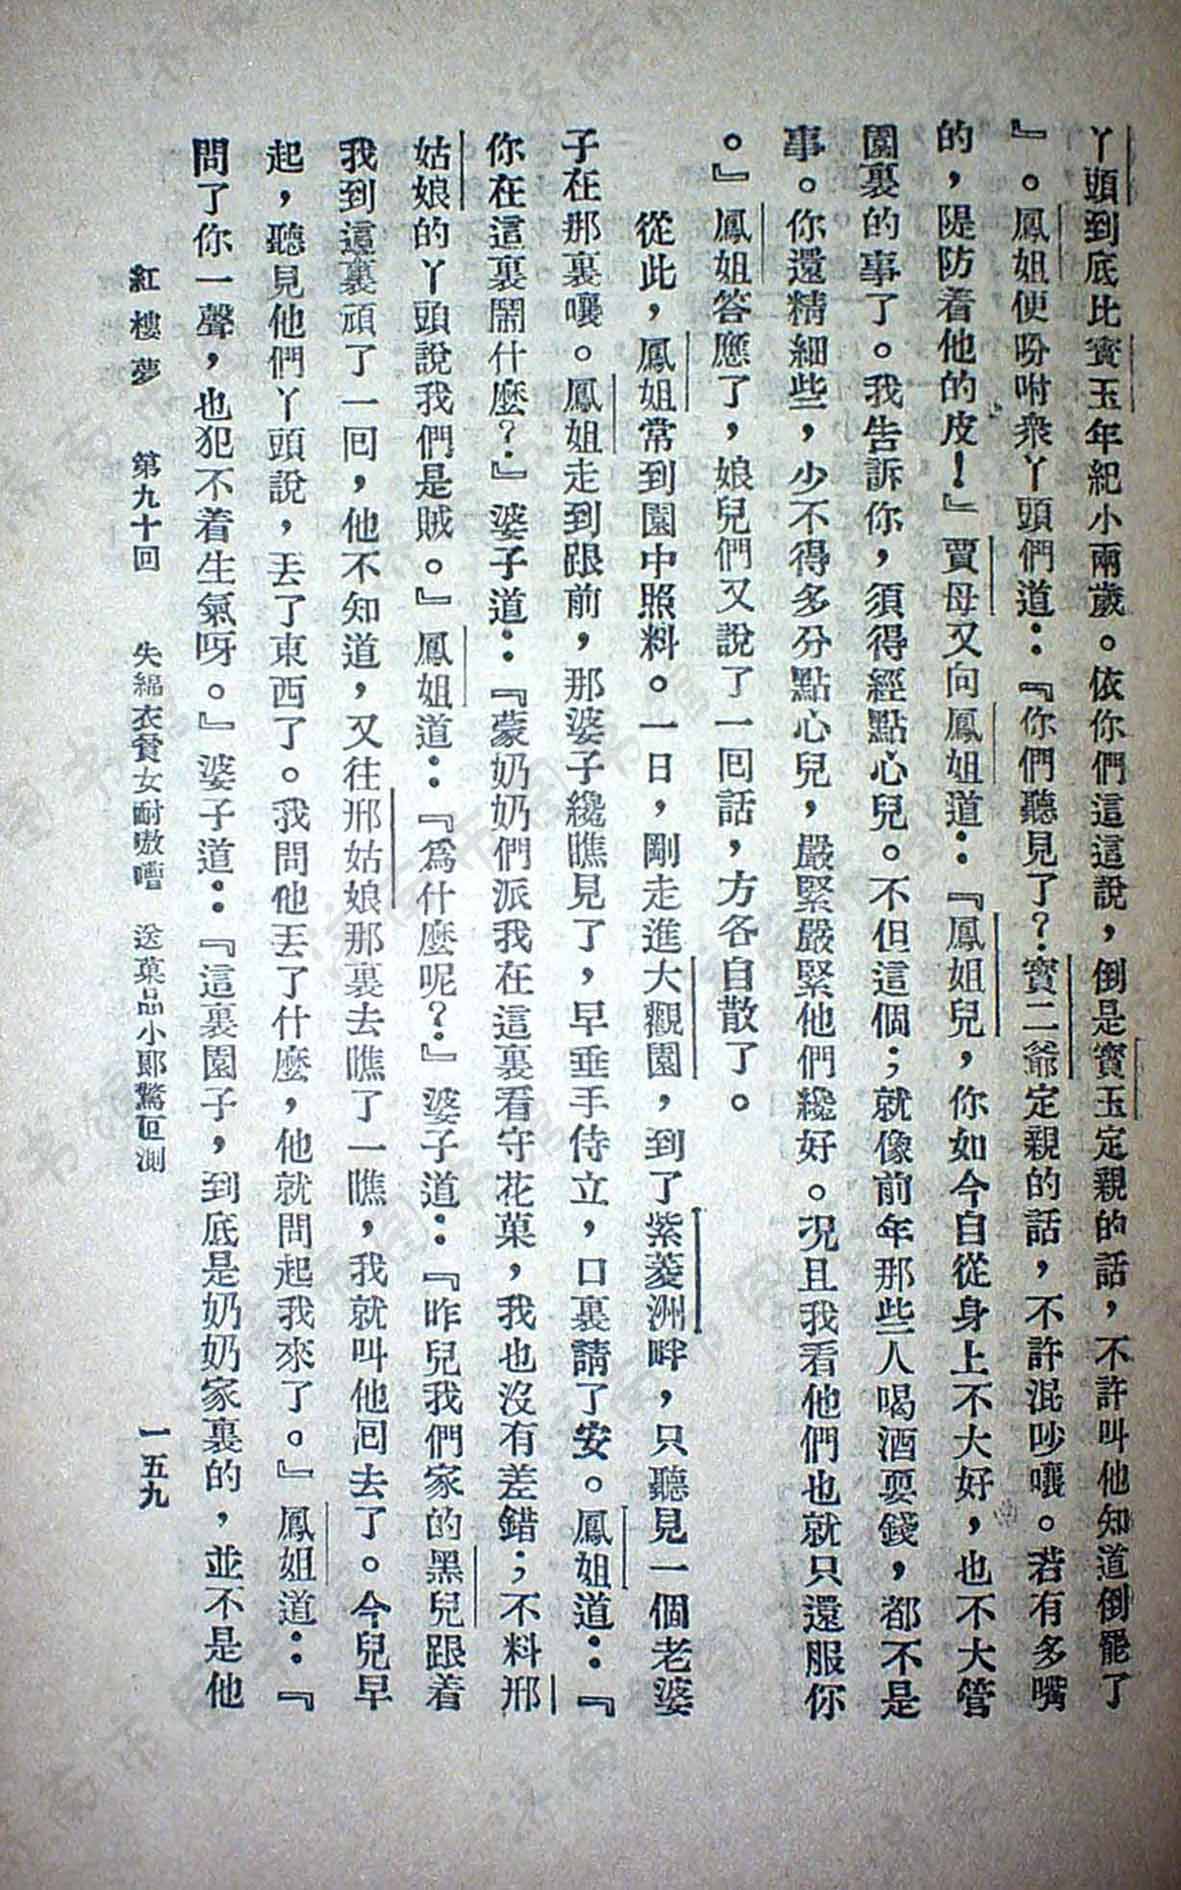 丫頭到底比寶玉年紀小兩歲。依你們這這說，倒是寶玉定親的話，不許叫他知道倒罷了
』。鳳姐便吩咐衆丫頭們道：『你們聽見了？寶二爺定親的話，不許混吵嚷。若有多嘴
的，隄防着他的皮！』賈母又向鳳姐道：『鳳姐兒，你如今自從身上不大好，也不大管
園裏的事了。我告訴你，須得經點心兒。不但這個；就像前年那些人喝酒耍錢，都不是
事。你還精細些，少不得多分點心兒，嚴緊嚴緊他們纔好。况且我看他們也就只還服你
。』鳳姐答應了，娘兒們又說了一回話，方各自散了。
從此，鳳姐常到園中照料。一日，剛走進大觀園，到了紫菱洲畔，只聽見一個老婆
子在那裏嚷。鳳姐走到跟前，那婆子纔瞧見了，早垂手侍立，口裏請了安。鳳姐道：『
你在這裏鬧什麼？』婆子道：『蒙奶奶們派我在這裏看守花菓，我也沒有差錯；不料邢
姑娘的丫頭說我們是賊。』鳳姐道：『爲什麼呢？』婆子道：『昨兒我們家的黑兒跟着
我到這裏頑了一回，他不知道，又往邢姑娘那裏去瞧了一瞧，我就叫他囘去了。今兒早
起，聽見他們丫頭說，丟了東西了。我問他丟了什麼，他就問起我來了。』鳳姐道：『
問了你一聲，也犯不着生氣呀。』婆子道：『這裏園子，到底是奶奶家裏的，並不是他
紅樓夢 第九十回 失綿衣貧女耐嗷嘈 送菓品小郎驚叵測 一五九